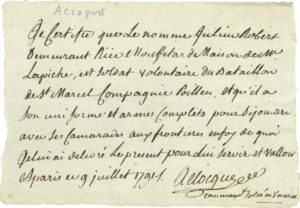 Acloque
Je Certifie que le nommé Julien Robert
Demeurant Rüe l'Houssetar de Maison de Mr
Lapiche, est Soldat Volontaire du Bataillon
de St Marcel Compagnie et qu'il a
Son uniforme et armes Complets pour
avec ses Camarades aux frontieres en foy de quoi
Je lui ai délivré le present pour lui Servir et Valloir
a paris ce 9 juillet Aclocque